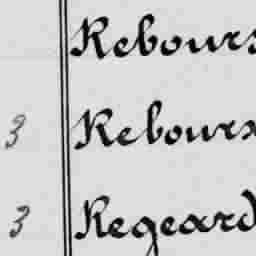 Rebours
3 Rebours
3 Regeard